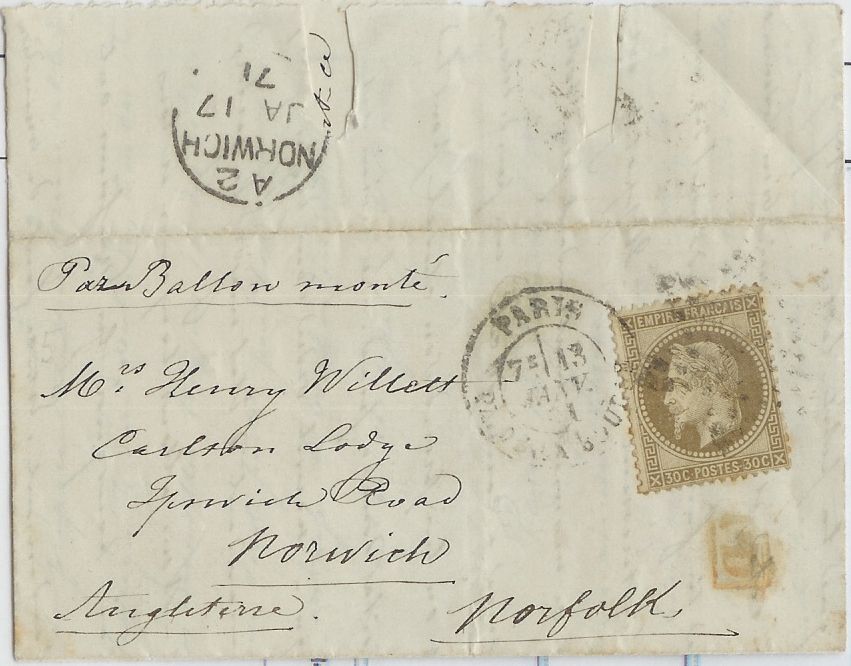 A 2
NORWICH
JA 17
71
Par Ballon monté.
PARIS
7E 13
JANV.
EMPIRE FRANÇAIS
30 C. POSTES 30 C.
Mrs. Henry Willett
Carlton Lodge
Ipswich Road
Norwich
Angleterre.
Norfolk